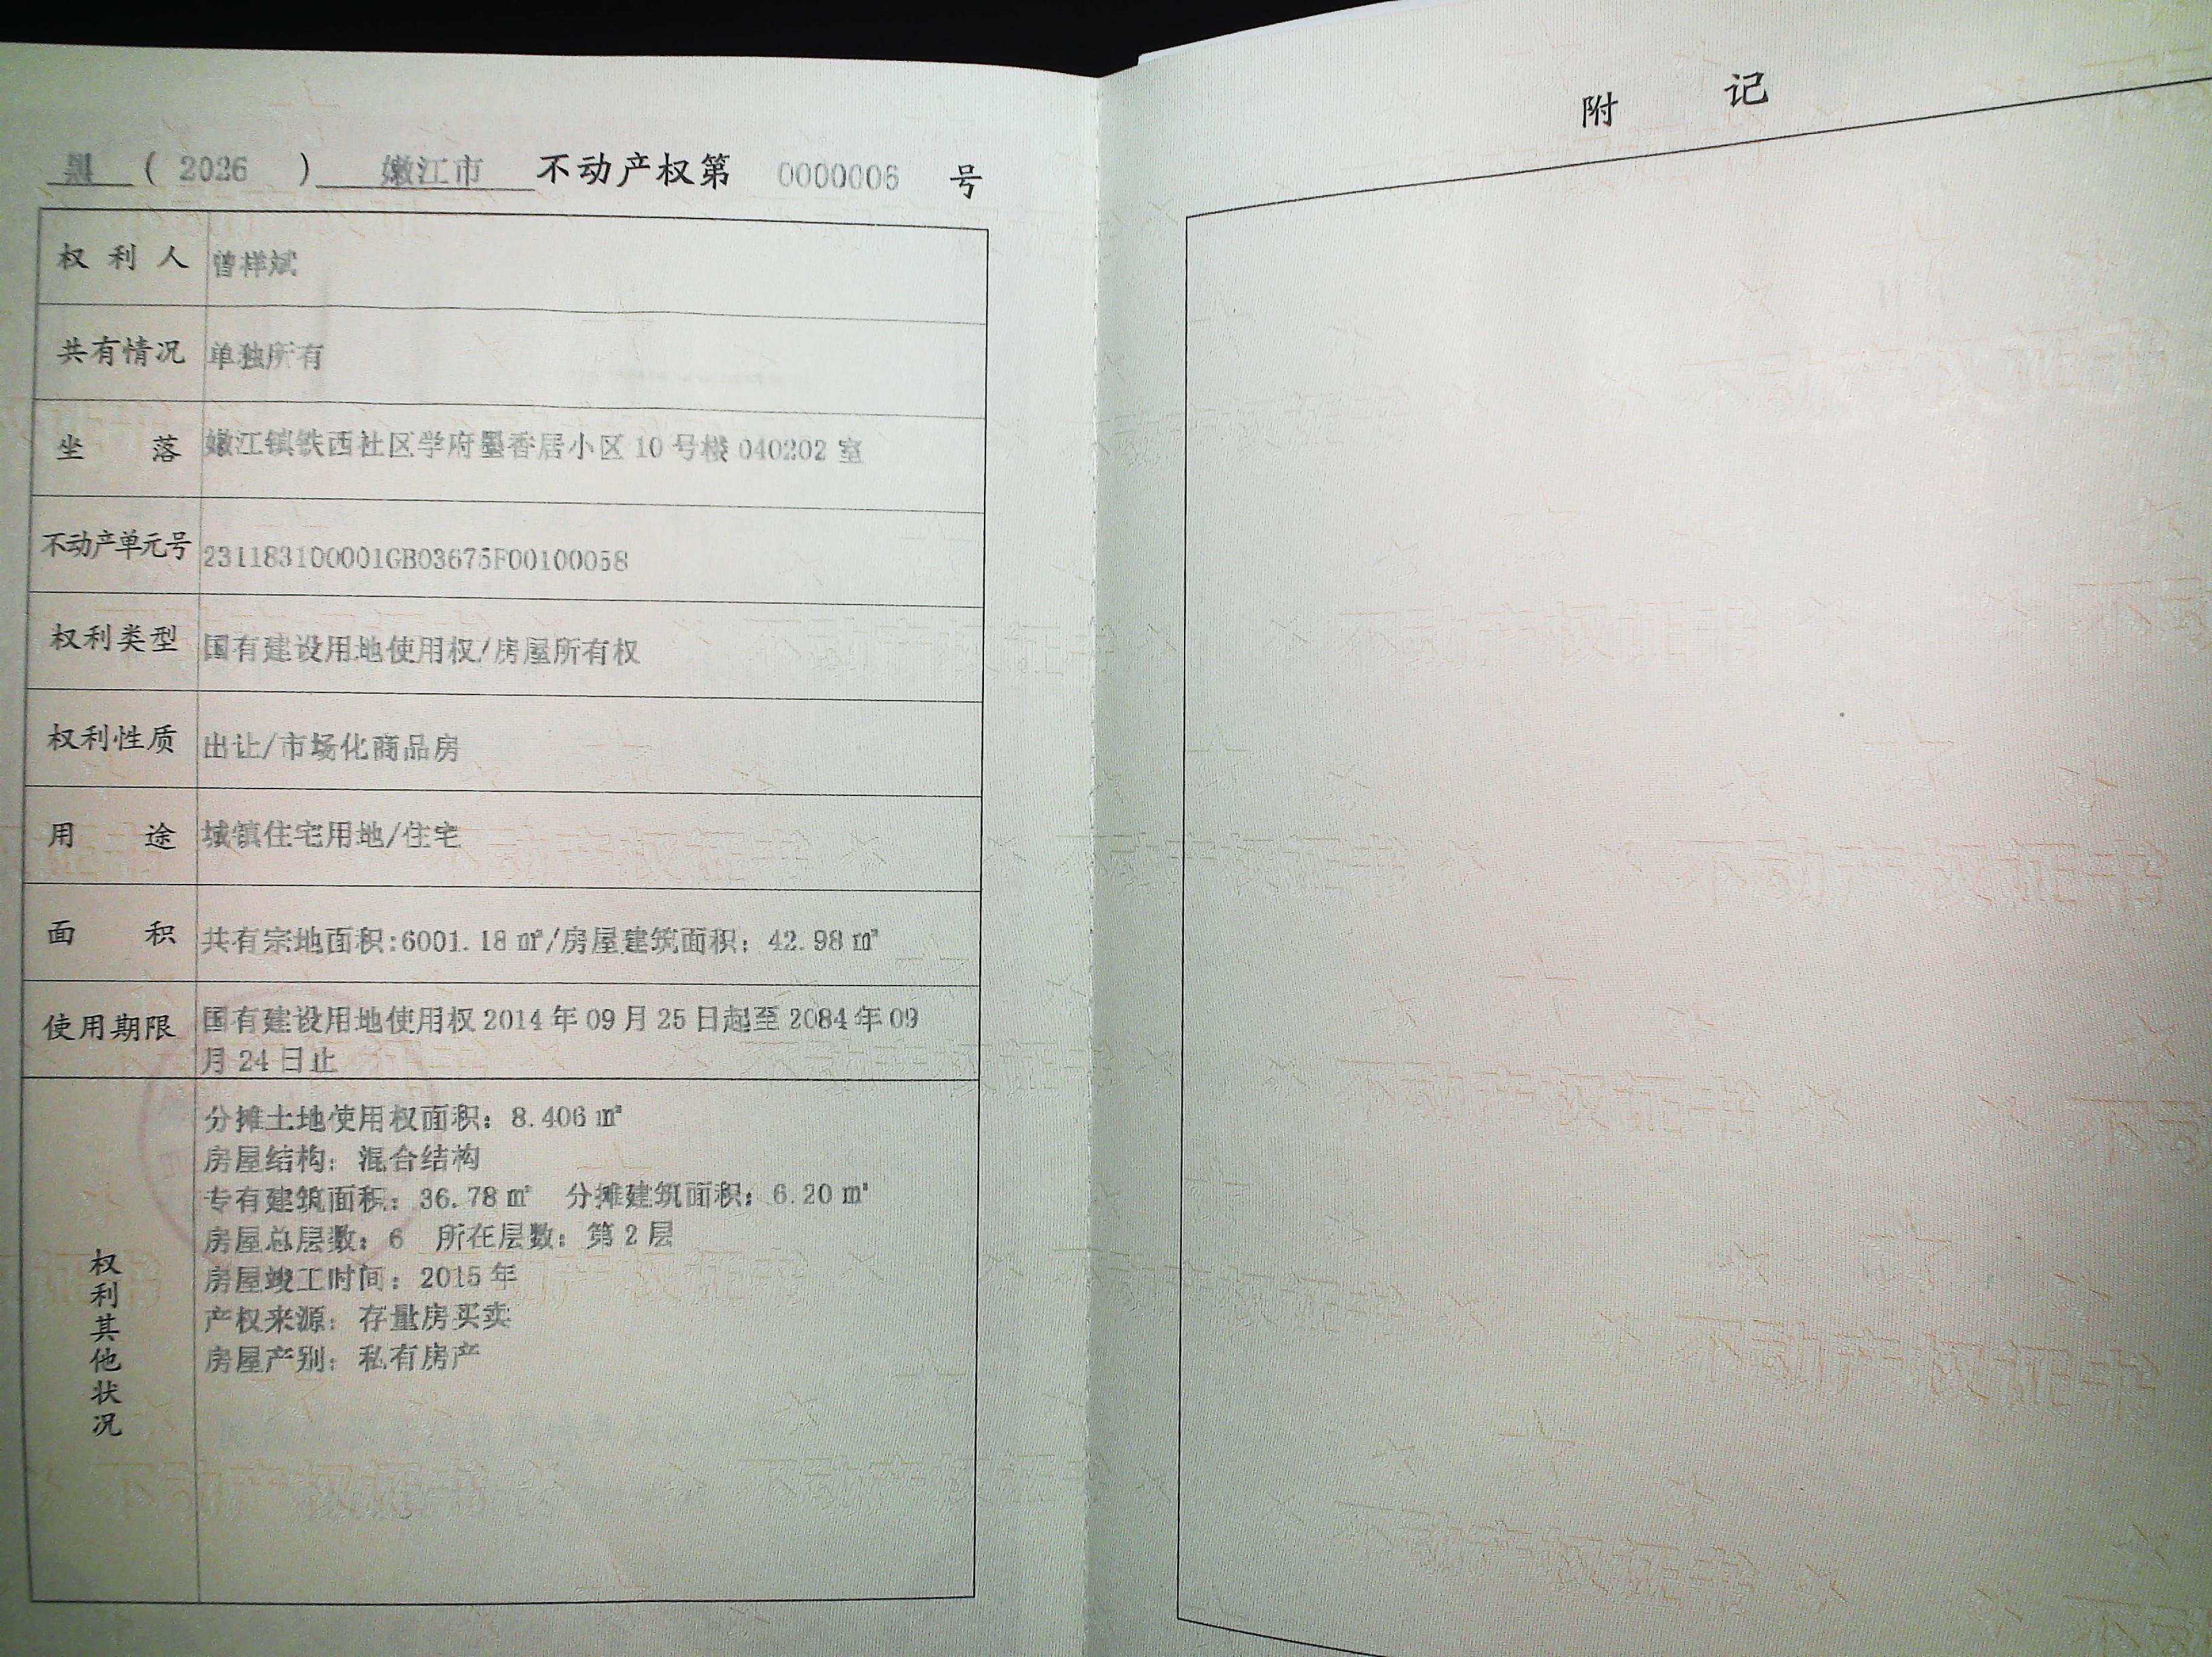 黑 ( 2026 ) 嫩江市 不动产权第 0000006 号
权利人 曾样斌
共有情况 单独所有
坐落 嫩江镇铁西社区学府墨香居小区 10 号楼 040202 室
不动产单元号 231183100001GB03675F00100058
权利类型 国有建设用地使用权/房屋所有权
权利性质 出让/市场化商品房
用途 城镇住宅用地/住宅
面积 共有宗地面积:6001.18 ㎡/房屋建筑面积：42.98 ㎡
使用期限 国有建设用地使用权 2014 年 09 月 25 日起至 2084 年 09
月 24 日止
权利其他状况
分摊土地使用权面积：8.406 ㎡
房屋结构：混合结构
专有建筑面积：36.78 ㎡ 分摊建筑面积：6.20 ㎡
房屋总层数：6 所在层数：第 2 层
房屋竣工时间：2015 年
产权来源：存量房买卖
房屋产别：私有房产
附记